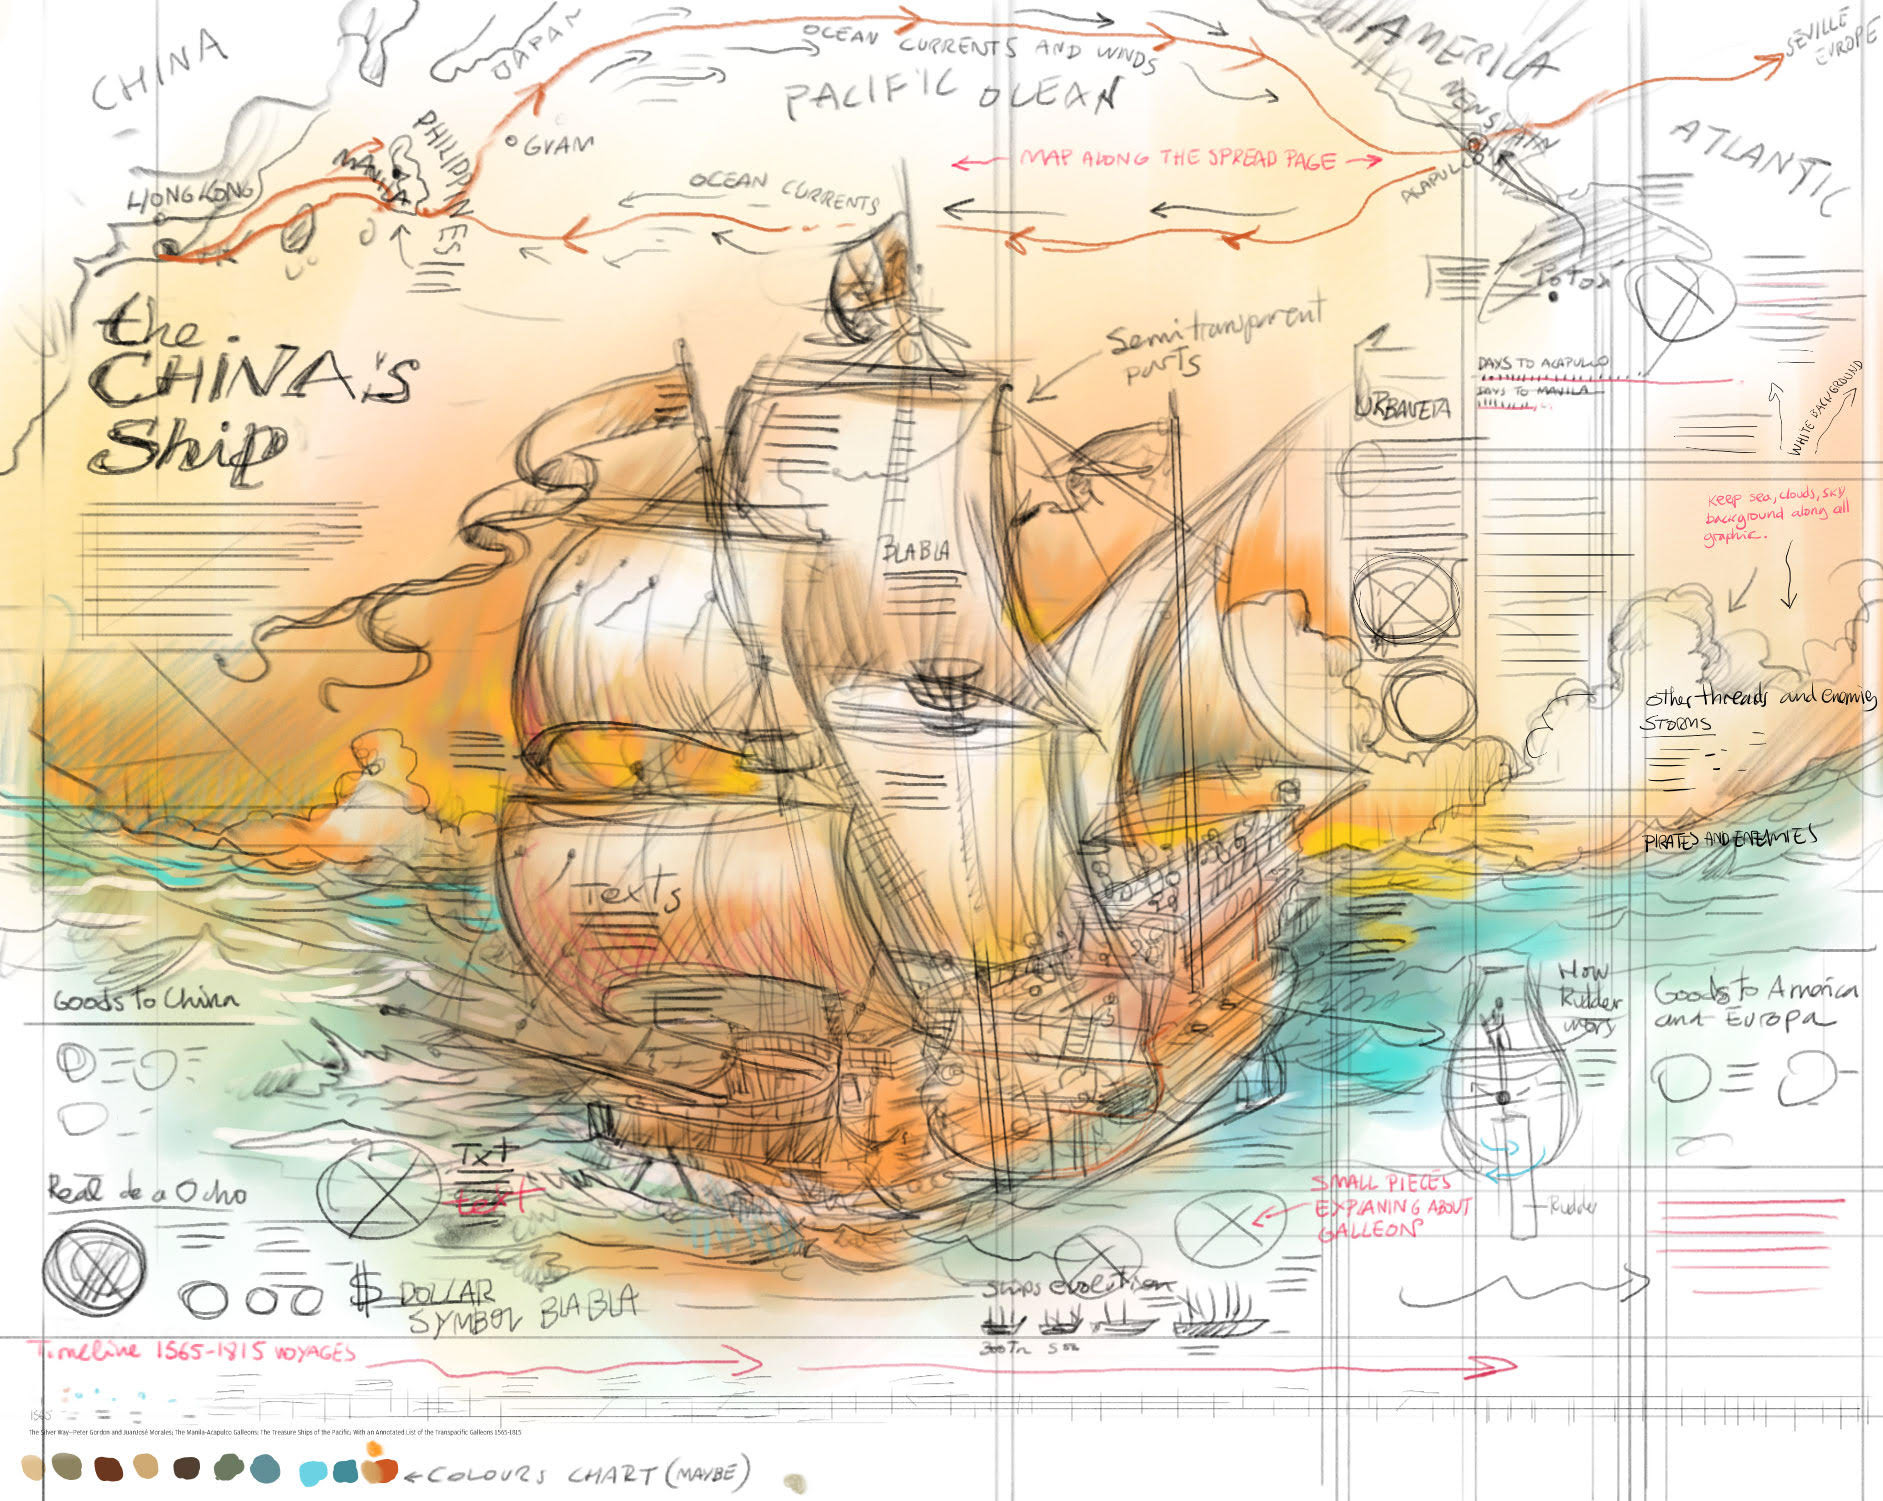 CHINA
JAPAN
OCEAN CURRENTS AND WINDS
PACIFIC OCEAN
AMERICA
NEW SPAIN
SEVILLE
EUROPE
ATLANTIC
PHILIPPINES
GUAM
MANILA
HONG KONG
OCEAN CURRENTS
MAP ALONG THE SPREAD PAGE
ACAPULCO
POTOSÍ
the
CHINA's
Ship
Semitransparent
parts
URBANETA
DAYS TO ACAPULCO
DAYS TO MANILA
WHITE BACKGROUND
Keep sea, clouds, sky
background along all
graphic.
BLABLA
Texts
other threads and enemies
STORMS
PIRATES AND ENEMIES
Goods to China
How
Rudder
Goods to America
and Europa
Real de a Ocho
Txt
text
SMALL PIECES
EXPLANING ABOUT
GALLEON
Rudder
$ DOLLAR
SYMBOL BLABLA
Ships evolution
300Tn
Timeline 1565-1815 VOYAGES
1565
The Silver Way—Peter Gordon and JuanJosé Morales; The Manila-Acapulco Galleons: The Treasure Ships of the Pacific; With an Annotated List of the Transpacific Galleons 1565-1815
COLOURS CHART (MAYBE)